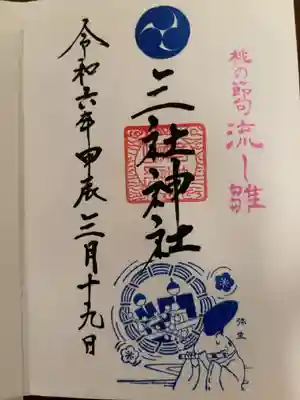 桃の節句
流し雛
三社神社
令和六年甲辰三月十九日
弥生